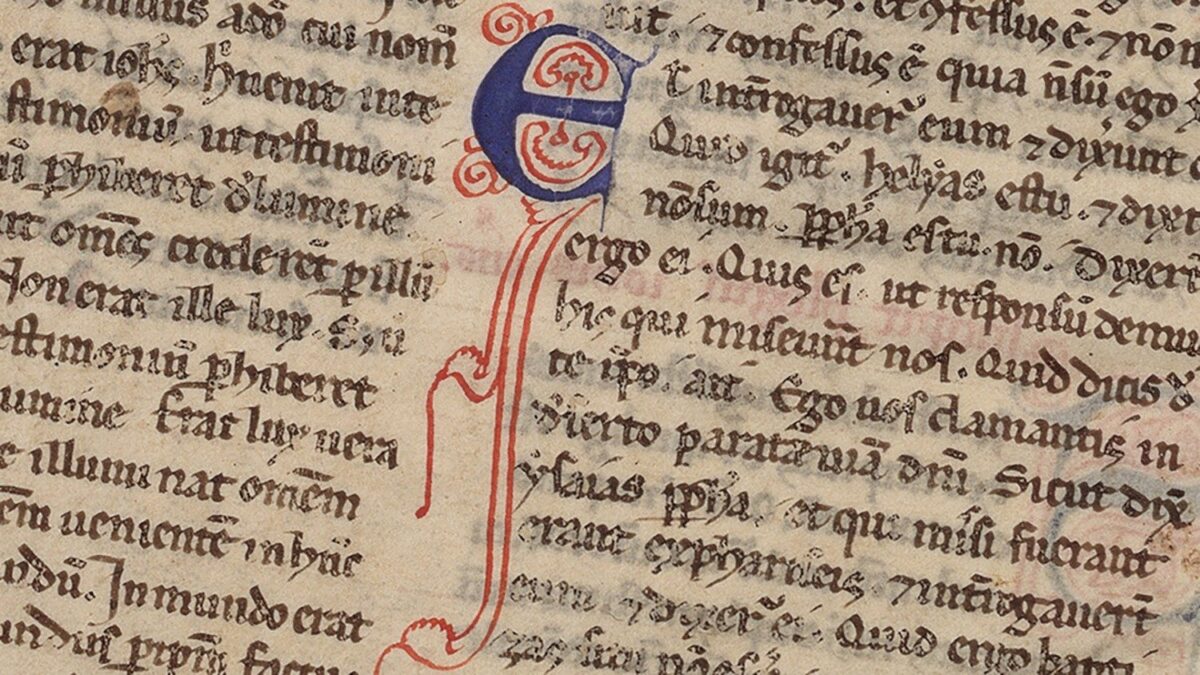 missus ado cui nom̄
erat ioħs. hic uenit in te
stimoniū. ut testimoni
ū ꝑhiberet d̄ lumine
ut om̄s crederēt ꝑ illū
Non erat ille lux. S; ut
testimoniū ꝑhiberet
lumine Erat lux uera
illuminat om̄em
uenientē in hūc
mundū. In mundo erat
mundus ꝑ ip̄m factus
E
⁊ confessus ē. ⁊ nō
⁊ confessus ē quia n̄ sū ego
Et int̄rogauer̄ eum ⁊ dixunt
Quid igit̄. helyas es tu. ⁊ dixit
nō sum. ꝓpħa es tu. nō. Dixert̄
ergo ei. Quis es. ut responsū demus
his qui miserūt nos. Quid dicis d̄
te ip̄o. ait. Ego uox clamantis in
d̄serto parate uiā dn̄i. Sicut dix̄
ysaias ꝓpħa. et qui missi fuerant
erant ex phariseis ⁊ int̄rogauert̄
eum ⁊ dixer̄ ei. Quid ergo bapti
zas